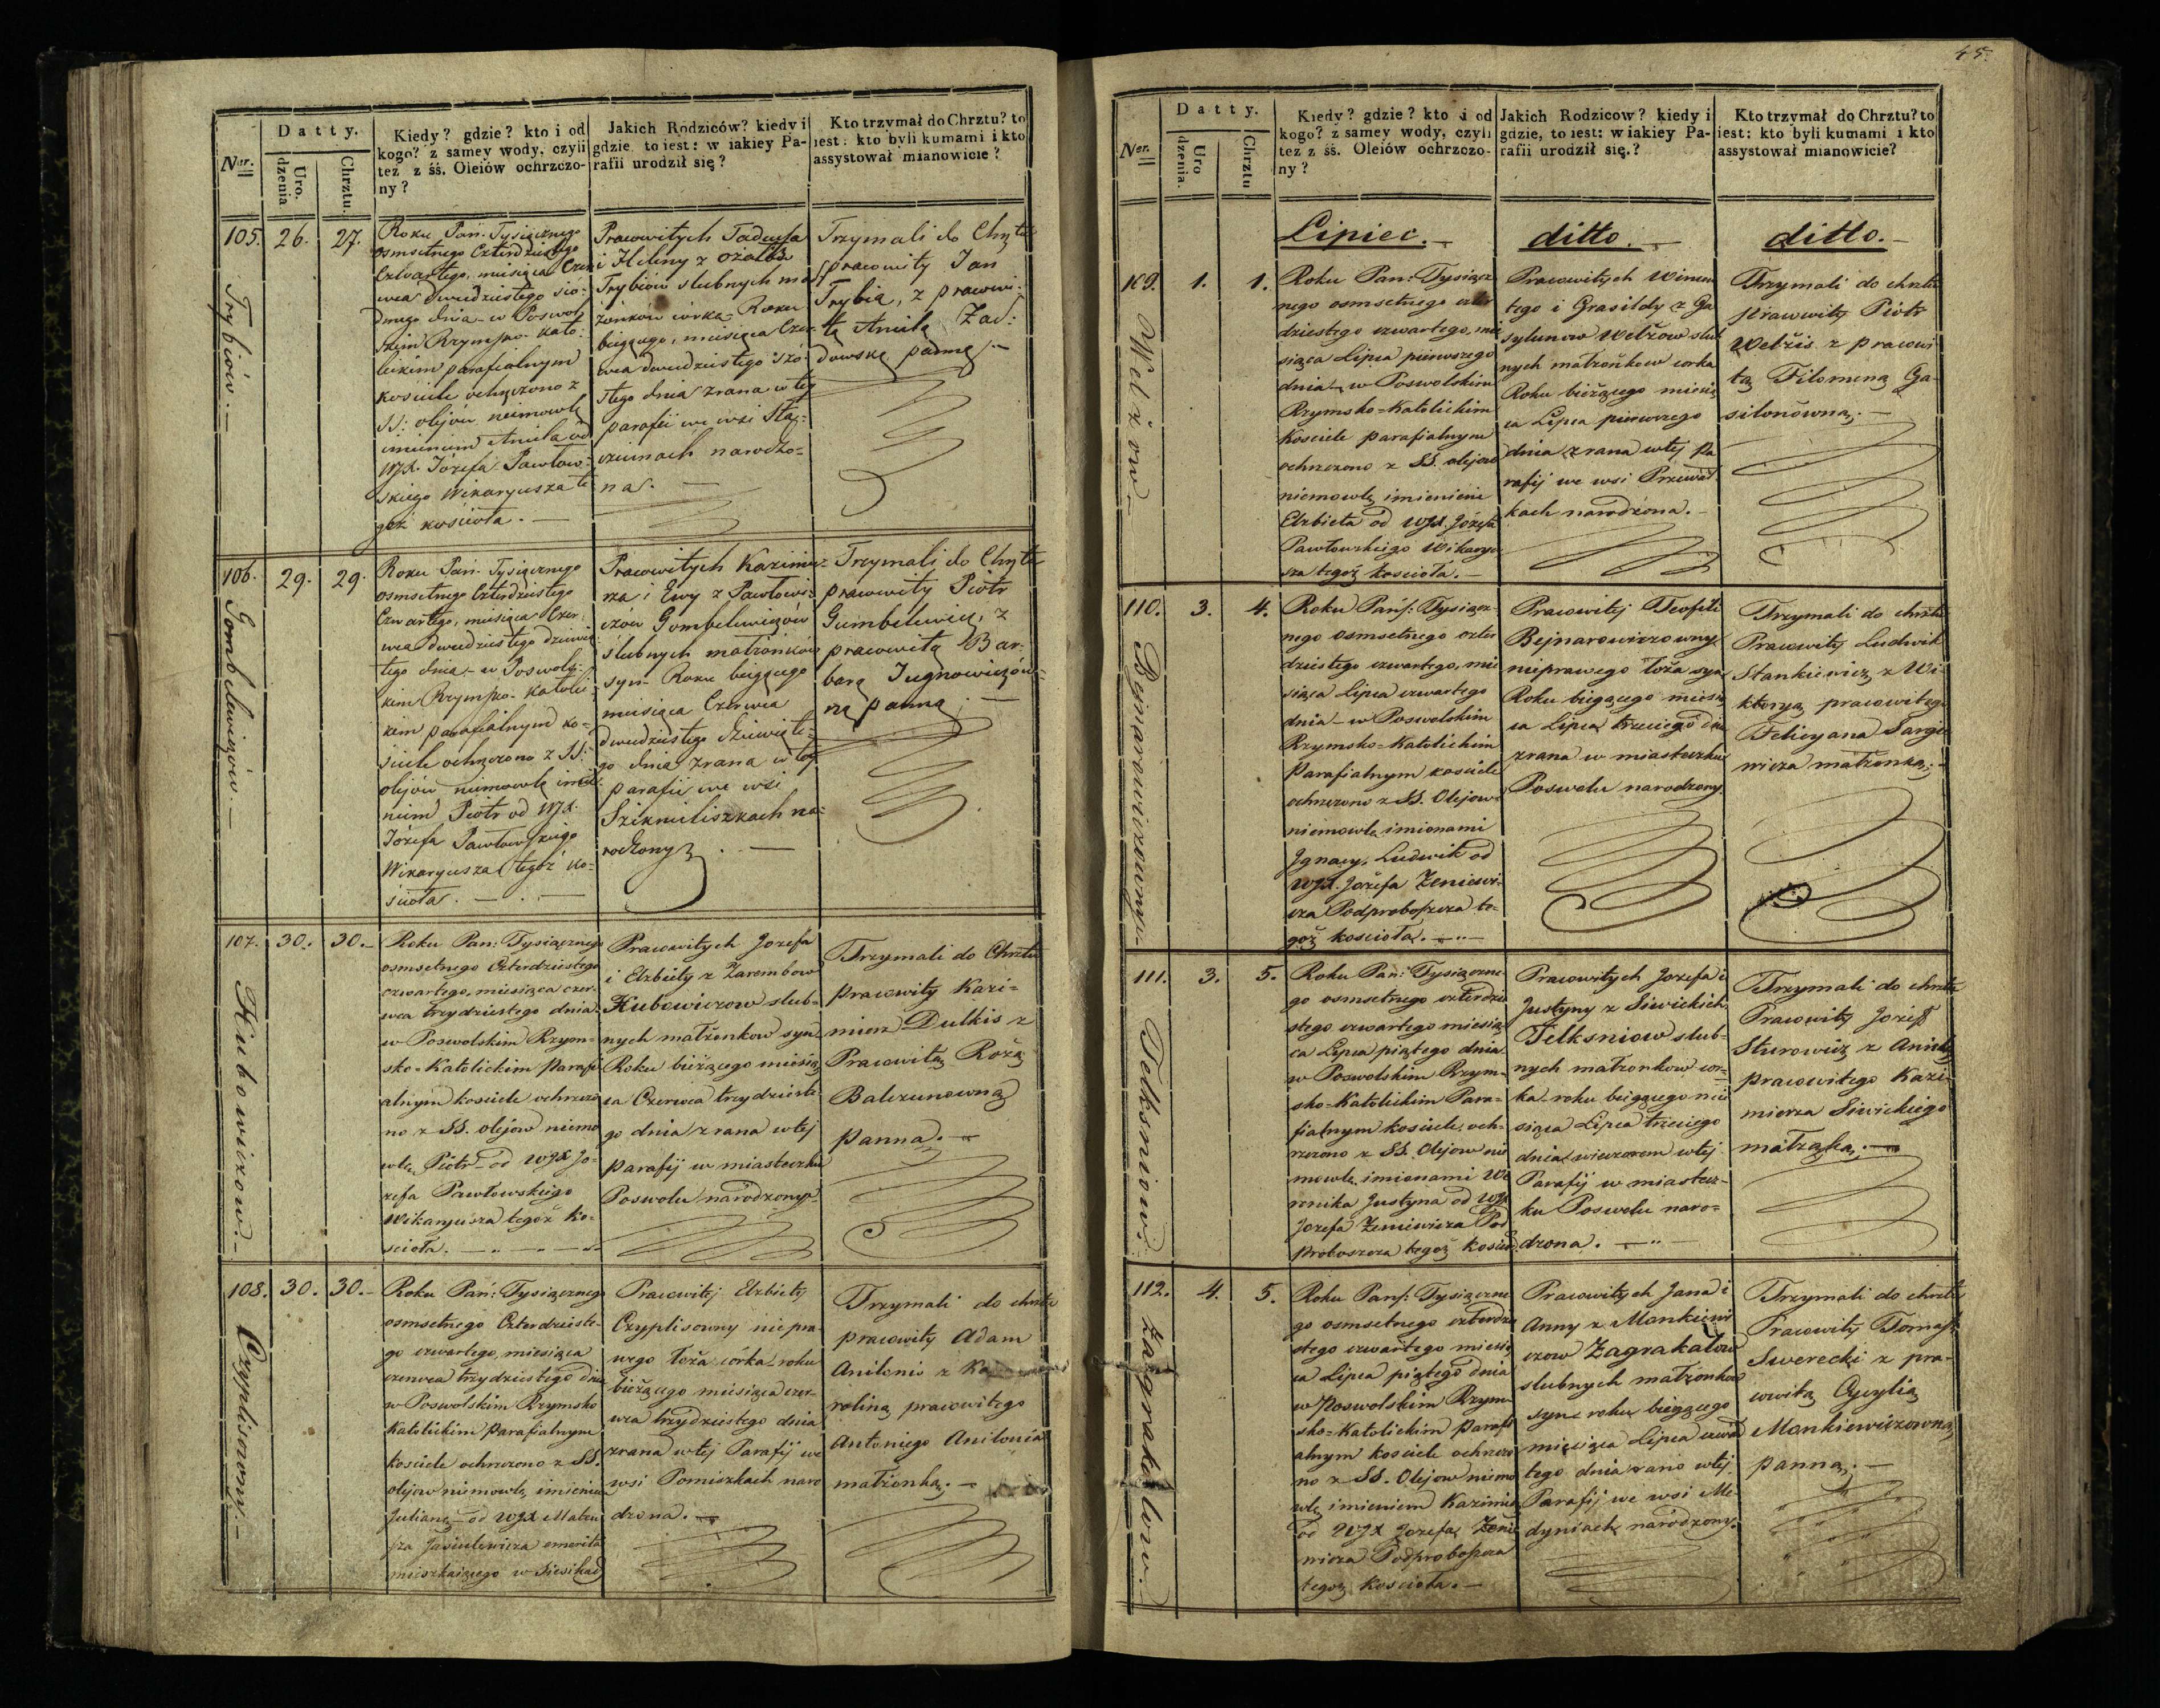 45.
Ner.
Datty.
Uro.
dzenia.
Chrztu.
Kiedy? gdzie? kto i od
kogo? z samey wody, czyli
też z śś. Oleiów ochrzczo-
ny?
Jakich Rodziców? kiedy i
gdzie to iest: w iakiey Pa-
rafii urodził się?
Kto trzymał do Chrztu? to
iest: kto byli kumami i kto
assystował mianowicie?
105.
Trybiów.—
26.
27.
Roku Pań. Tysiącznego
osmsetnego Czterdziestego
Czwartego, miesiąca Czer
wca dwudziestego sio-
dmego dnia – w Poswol
skim Rzymsko-kato-
lickim parafialnym
kościele ochrzczono z
SS: olejów niemowle
imieniem Aniela od
WJX. Józefa Pawłow-
skiego Wikaryusza te-
goż kościoła.—
Pracowitych Tadeusza
i Heleny z
Trybiów slubnych mał
żonków córka – Roku
biegącego, miesiąca Czer-
wca dwudziestego szó-
stego dnia zrana w tej
parafii we wsi Sta-
czunach narodzo-
na.—
Trzymali do Chrztu
pracowity Jan
Trybia, z pracowi-
tą Anielą Zad-
dowską panną.—
106.
Gombelewiczów.—
29.
29.
Roku Pań. Tysiącznego
osmsetnego Czterdziestego
Czwartego, miesiąca Czer-
wca dwudziestego dziewią
tego dnia – w Poswols-
kim Rzymsko-katolic-
kim parafialnym ko-
ściele ochrzczono z SS:
olejów niemowle imie
niem Piotr od WJX.
Józefa Pawłowskiego
Wikaryusza tegoż ko-
ścioła.—
Pracowitych Kazimie-
rza i Ewy z Pawłowi-
czów Gombelewiczów
ślubnych małżonków
syn – Roku biegącego
miesiąca Czerwca
dwudziestego dziewiąte-
go dnia zrana w tej
parafii we wsi
Szikmiliszkach na-
rodzony.—
Trzymali do Chrztu
pracowity Piotr
Gumbelewicz, z
pracowitą Bar-
barą Jugnowiczów-
ną panną.—
107.
Kubowiczow.—
30.
30.–
Roku Pań: Tysiącznego
osmsetnego Czterdziestego
czwartego, miesiąca czer-
wca trzydziestego dnia
w Poswolskim Rzym-
sko-Katolickim Parafi
alnym kościele ochrzczo
no z SS. olejow niemo
wle Piotr – od WJX Jo-
zefa Pawłowskiego
Wikaryusza tegoż ko-
scioła.—
Pracowitych Jozefa
i Elzbiety z Zarembow
Kubowiczow slub-
nych małżonkow syn.
Roku bieżącego miesią
ca Czerwca trzydzieste
go dnia zrana w tej
parafij w miasteczku
Poswolu narodzony.
Trzymali do Chrztu
pracowity Kazi-
mierz Dulkis z
Pracowitą Rożą
Balczunowną
panna.—
108.
Czyplisowny.—
30.
30.–
Roku Pań: Tysiącznego
osmsetnego Czterdzieste-
go czwartego, miesiąca
czerwca trzydziestego dnia
w Poswolskim Rzymsko
Katolickim Parafialnym
kosciele ochrzczono z SS.
olejow niemowle, imieniem
Julianę – od WJX Mateu
sza Jasiulewicza emerita
mieszkaiącego w
Pracowitej Elzbiety
Czyplisowny niepra-
wego łoża córka – roku
bieżącego miesiąca czer-
wca trzydziestego dnia
zrana w tej Parafij we
wsi Pomiszkach naro
dzona.—
Trzymali do chrztu
pracowity Adam
Anilonis z Ka
roliną pracowitego
Antoniego Anilonia
małżonką.—
Ner.
Datty.
Uro
dzenia.
Chrztu
Kiedy? gdzie? kto i od
kogo? z samey wody, czyli
tez z śś. Oleiów ochrzczo-
ny?
Jakich Rodzicow? kiedy i
gdzie, to iest: w iakiey Pa-
rafii urodził się.?
Kto trzymał do Chrztu? to
iest: kto byli kumami i kto
assystował mianowicie?
Lipiec.—
ditto.—
ditto.—
109.
Welżow.—
1.
1.
Roku Pań: Tysiącz
nego osmsetnego czter
dziestego czwartego, mie
siąca Lipca pierwszego
dnia – w Poswolskim
Rzymsko-Katolickim
Kosciele parafialnym
ochrzczono z SS. olejow
niemowle imieniem
Elzbieta od WJX. Józefa
Pawłowskiego Wikaryu
sza tegoż kościoła.—
Pracowitych Wincen
tego i Grasildy z Ga
sylunow Welżow slub
nych małżonkow corka
Roku bieżącego miesią
ca Lipca pierwszego
dnia zrana w tej Pa
rafij we wsi
kach narodzona.—
Trzymali do chrztu
pracowity Piotr
Welżis z pracowi
tą Filomeną Ga-
silonówną.—
110.
Bejnarowiczowny.—
3.
4.
Roku Pańs: Tysiącz-
nego osmsetnego czter
dziestego czwartego, mie
siąca Lipca czwartego
dnia – w Poswolskim
Rzymsko-Katolickim
Parafialnym kosciele
ochrzczono z SS. Olejow
niemowle imionami
Ignacy, Ludwik od
WJX. Jozefa Zeniewi-
cza Podproboszcza te-
goż kosciola.—
Pracowitej Teofili
Bejnarowiczowny
nieprawego łoża syn
Roku biegącego miesią
ca Lipca trzeciego dnia
zrana w miasteczku
Poswolu narodzony.
Trzymali do chrztu
Pracowity Ludwik
Stankiewicz z Wi-
ktoryą pracowitego
Felicyana Sargie
wicza małżonką.—
111.
Telksniow.
3.
5.
Roku Pań: Tysiączne
go osmsetnego czterdzie
stego czwartego miesią
ca Lipca piątego dnia
w Poswolskim Rzym-
sko-Katolickim Para-
fialnym kosciele, och-
rzczono z SS. Olejow nie
mowle, imionami We
ronika Justyna od WJX
Jozefa Zeniewicza Pod
proboszcza tegoż koscioł
Pracowitych Jozefa i
Justyny z Siwickich
Telksniow slub-
nych małżonkow cor-
ka – roku biegącego mie
siąca Lipca trzeciego
dnia wieczorem w tej
Parafij w miastecz-
ku Poswolu naro-
dzona.—
Trzymali do chrztu
Pracowity Jozef
Sturowicz z Anielą
pracowitego Kazi-
mierza Siwickiego
małżąką.—
112.
Zagrakalow.
4.
5.
Roku Pańs: Tysiączne
go osmsetnego czterdzie
stego czwartego miesią
ca Lipca piątego dnia
w Poswolskim Rzym-
sko-Katolickim parafi
alnym kosciele ochrzczo
no z SS. Olejow niemo
wle imieniem Kazimierz
od WJX Jozefa Zenie
wicza Podproboszcza
tegoż Kosciola.—
Pracowitych Jana i
Anny z Monkiewi
czow Zagrakalow
slubnych małżonkow
syn roku biegącego
miesiąca Lipca czwar
tego dnia zrano w tej
Parafij we wsi Me-
dyniach narodzony.
Trzymali do chrztu
Pracowity Tomasz
Swerecki z pra-
cowitą Cycylią
Monkiewiczowną
panną.—